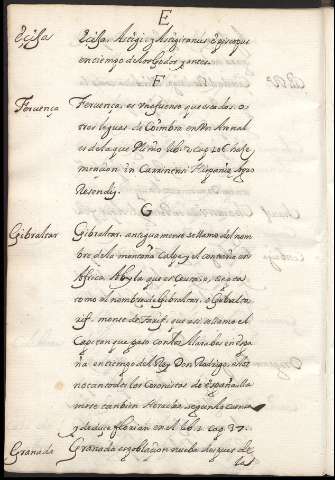 E
Ecija Ecija. Astigi, y Astigitanus Episcopus
en tiempo de los Godos, y antes.
F
Feruença Feruença, es vna fuente questa dos. o
tres leguas de Coimbra en
es de la que Plinio lib. 2. cap. 106. haze
mencion in Carinensi Hispaniæ agro
Resendig.
G
Gibraltar Gibraltar. antiguamente se llamo del nom
bre de la montaña Calpe, y el contraria en
Africa Abyla que es Ceuta. o,
como al nombre de Gibraltar, o Gibralta
rif. monte de Tarif. que asi se llamo el
Capitan que paso con los Alarabes en Espa
ña en tiempo del Rey Don Rodrigo,
los Coronistas de España. lla
mose tambien Heraclea segun
y deduçe Florian en el lib. 2. cap. 37.
Granada Granada es poblaçion nueba despues de
las